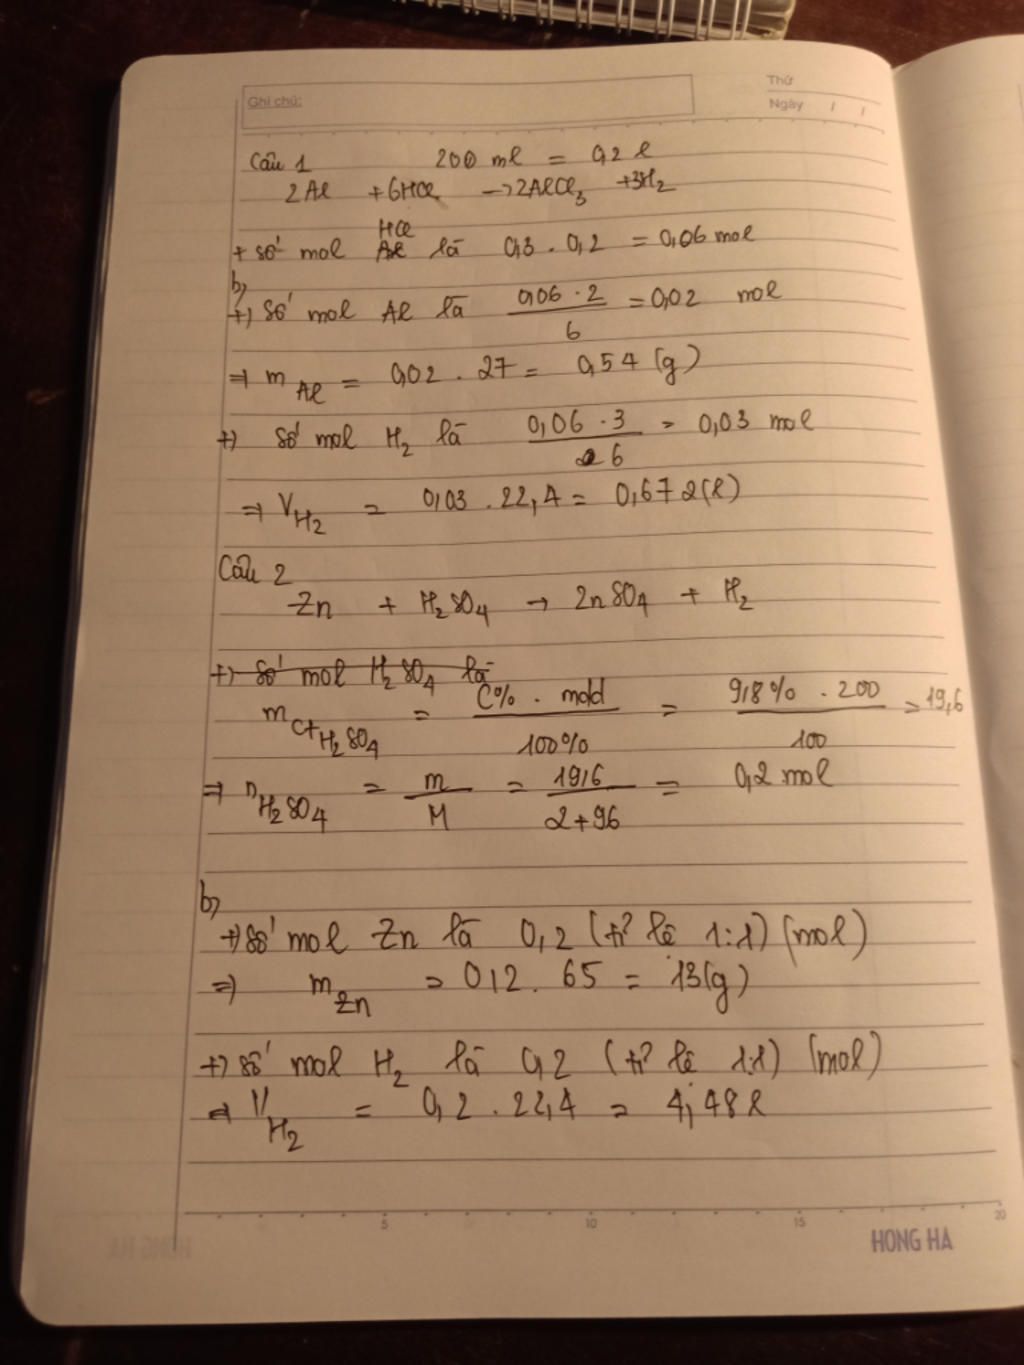 Ghi chú:
Thứ
Ngày / /
Câu 1 200 ml = 0,2 l
2Al + 6HCl → 2AlCl3 + 3H2
HCl
+ Số mol Al là 0,3 . 0,2 = 0,06 mol
b,
+) Số mol Al là 0,06 . 2 / 6 = 0,02 mol
⇒ mAl = 0,02 . 27 = 0,54 (g)
+) Số mol H2 là 0,06 . 3 / 6 = 0,03 mol
⇒ VH2 = 0,03 . 22,4 = 0,672 (l)
Câu 2
Zn + H2SO4 → ZnSO4 + H2
+) Số mol H2SO4 là
mCt H2SO4 = C% . mdd / 100% = 9,8% . 200 / 100 = 19,6
⇒ nH2SO4 = m / M = 19,6 / 2+96 = 0,2 mol
b,
+) Số mol Zn là 0,2 (tỉ lệ 1:1) (mol)
⇒ mZn = 0,2 . 65 = 13 (g)
+) Số mol H2 là 0,2 (tỉ lệ 1:1) (mol)
⇒ VH2 = 0,2 . 22,4 = 4,48 l
5 10 15 20
HONG HA